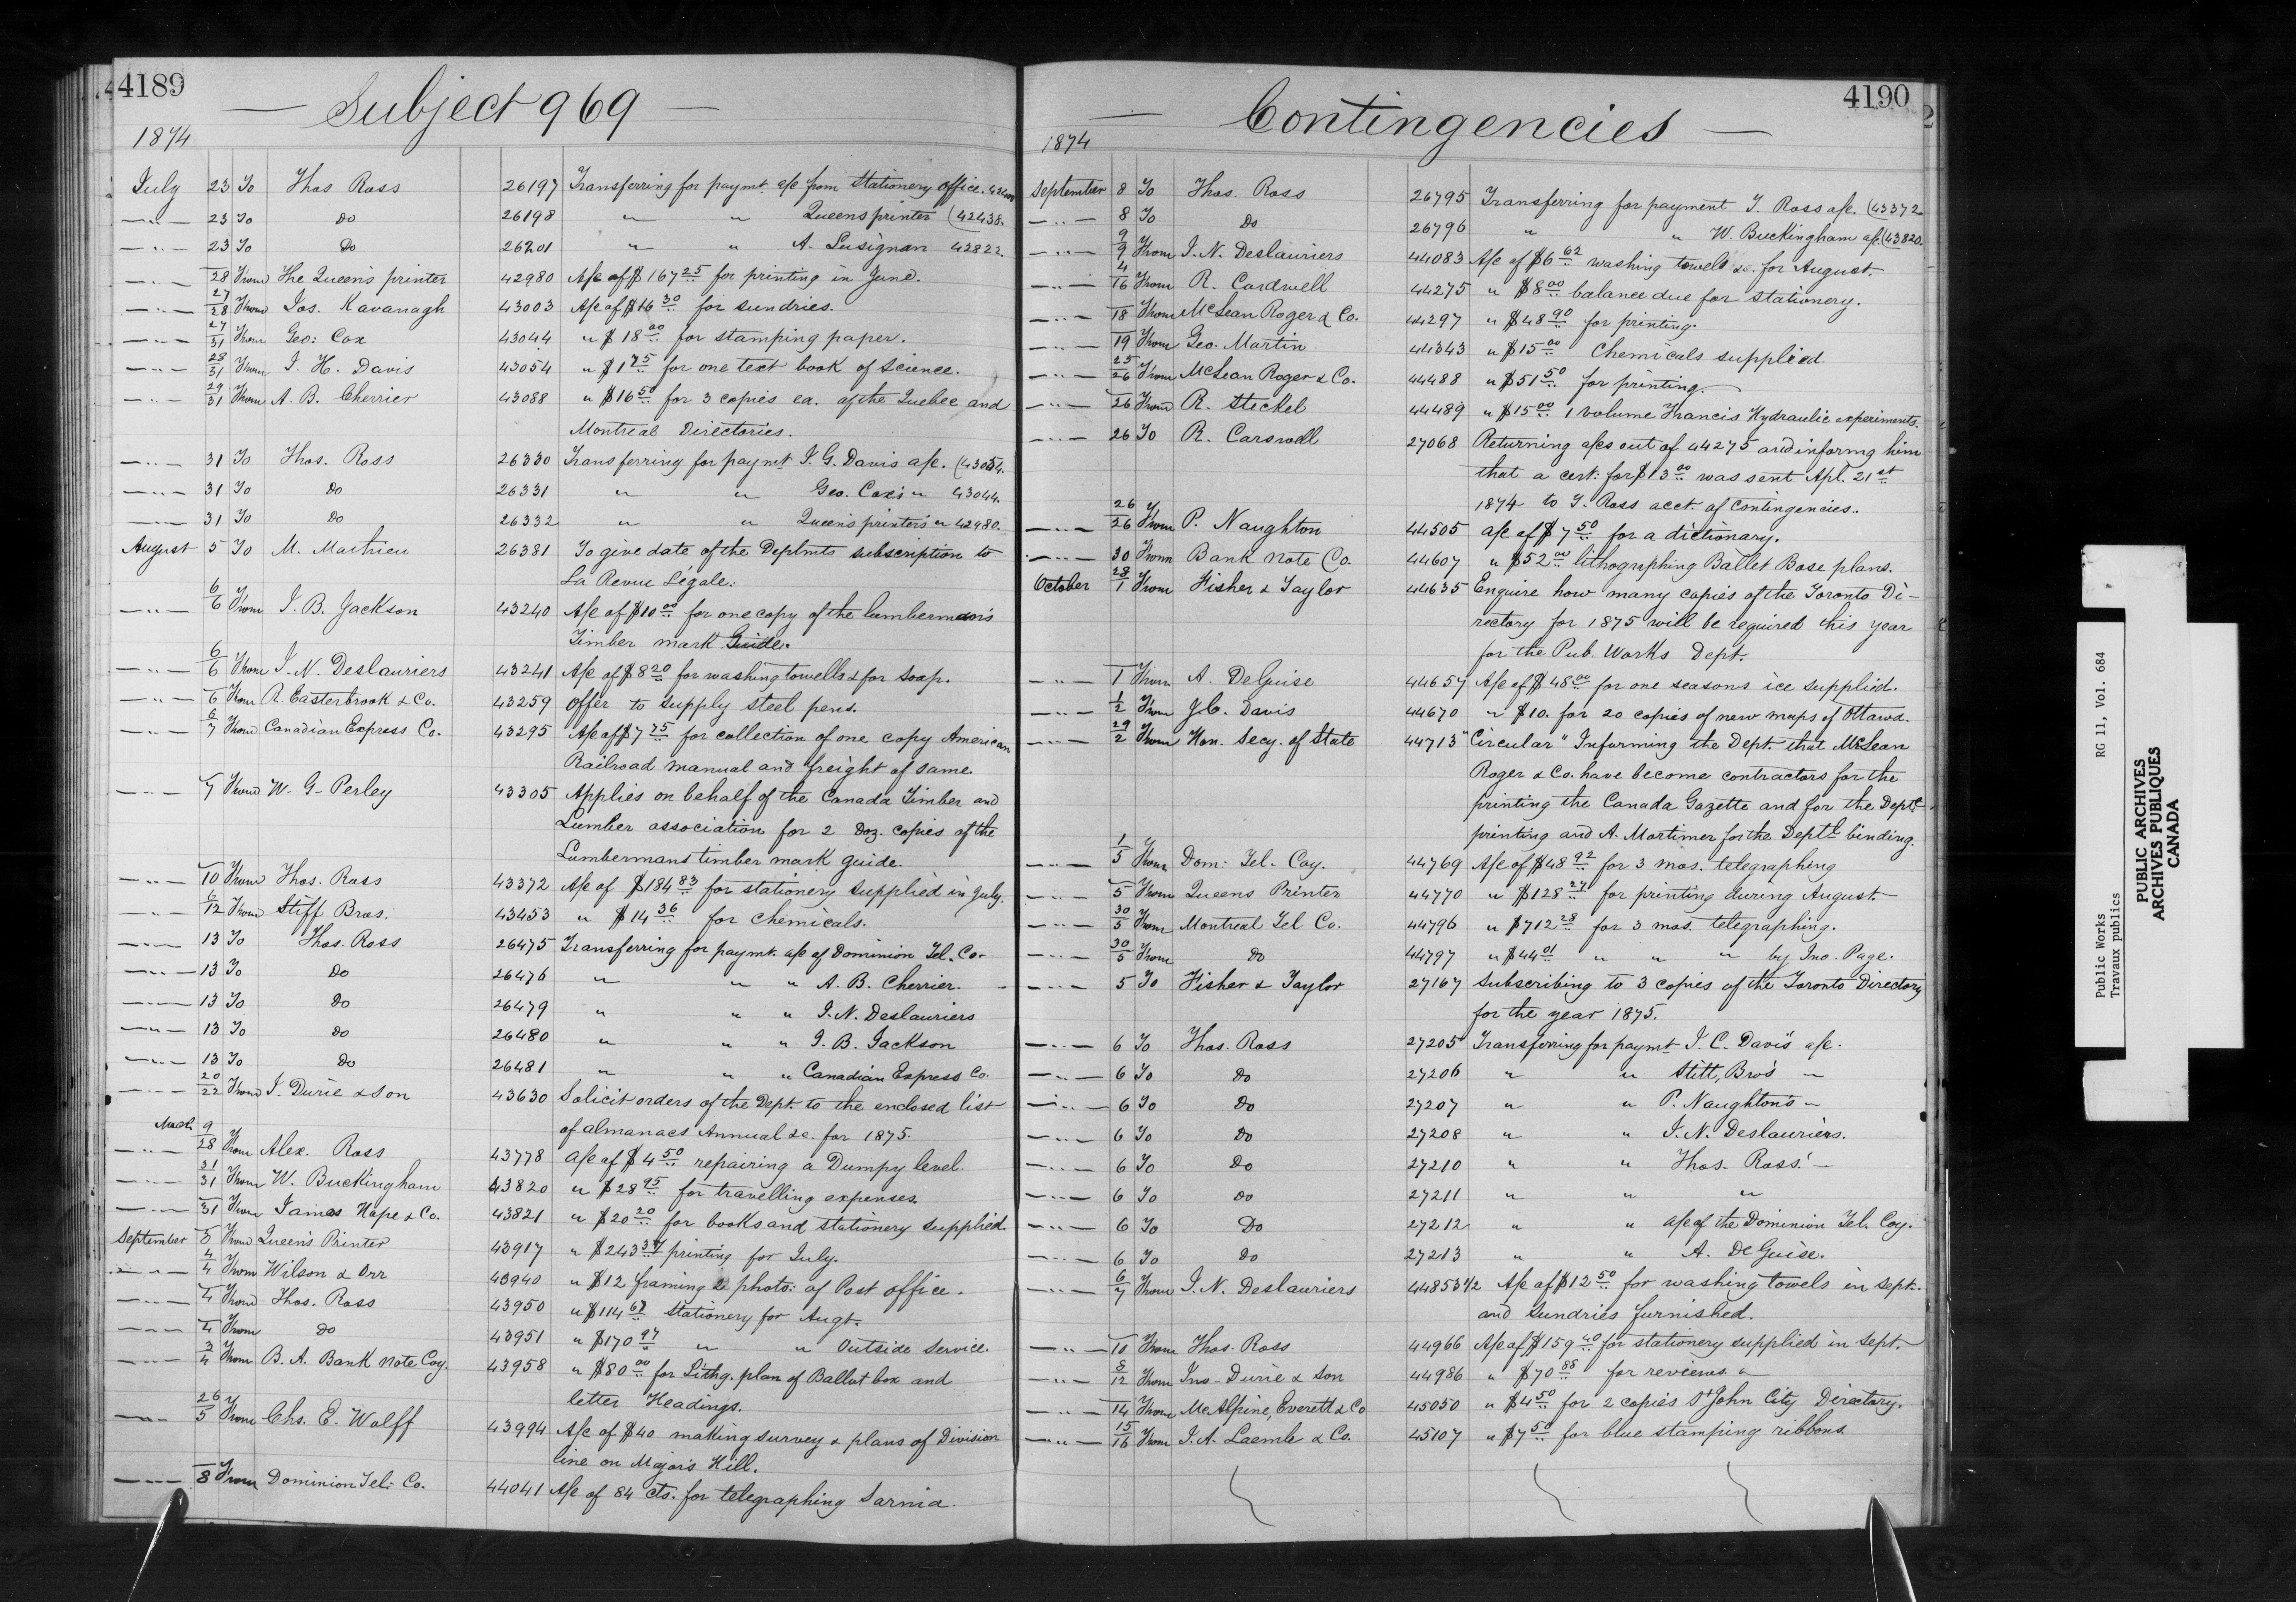 4189
Subject 969
1874
July 23 To Thos Ross 26197 Transferring for paymt. a/c from Stationery Office.
—"— 23 To Do 26198 " " Queens printer (42438.
—"— 23 To Do 26201 " " A. Lusignan 42822.
—"— 28 From The Queen's printer 42980 A/c of $167 25 for printing in June.
—"— 27/28 From Jos. Kavanagh 43003 A/c of $16 30 for sundries.
—"— 27/31 From Geo: Cox 43044 " $18 00 for stamping paper.
—"— 28/31 From J. H. Davis 43054 " $1 75 for one text book of Science.
—"— 29/31 From A. B. Cherrier 43088 " $16 50 for 3 copies ea. of the Quebec and
Montreal Directories.
—"— 31 To Thos. Ross 26330 Transferring for paymt. J. G. Davis a/c. (43054.
—"— 31 To Do 26331 " " Geo. Cox's " 43044.
—"— 31 To Do 26332 " " Queen's printer's " 42980.
August 5 To M. Mathieu 26381 To give date of the Deptmts subscription to
La Revue Légale.
—"— 6/6 From J. B. Jackson 43240 A/c of $10 00 for one copy of the lumberman's
Timber mark Guide.
—"— 6/6 From J. N. Deslauriers 43241 A/c of $8 20 for washing towells & for soap.
—"— 6 From R. Easterbrook & Co. 43259 Offer to supply steel pens.
—"— 6/7 From Canadian Express Co. 43295 A/c of $7 75 for collection of one copy American
Railroad manual and freight of same.
—"— 7 From W. G. Perley 43305 Applies on behalf of the Canada Timber and
Lumber association for 2 Doz. copies of the
Lumbermans timber mark guide.
—"— 10 From Thos. Ross 43372 A/c of $184 83 for stationery supplied in July.
—"— 6/12 From Stiff Bros. 43453 " $14 36 for chemicals.
—"— 13 To Thos. Ross 26475 Transferring for paymt. a/c of Dominion Tel. Co.
—"— 13 To Do 26476 " " " A. B. Cherrier.
—"— 13 To Do 26479 " " " J. N. Deslauriers
—"— 13 To Do 26480 " " " J. B. Jackson
—"— 13 To Do 26481 " " " Canadian Express Co.
—"— 20/22 From J. Durie & Son 43630 Solicit orders of the Dept. to the enclosed list
of almanacs Annual &c. for 1875.
—"— 9/28 From Alex. Ross 43778 a/c of $4 50 repairing a Dumpy level.
—"— 31/31 From W. Buckingham 43820 " $28 95 for travelling expenses.
—"— 31 From James Hope & Co. 43821 " $20 20 for books and stationery supplied.
September From Queen's Printer 43917 " $243 37 printing for July.
—"— 4/4 From Wilson & Orr 43940 " $12 framing 2 photo: of Post office.
—"— 4 From Thos. Ross 43950 " $114 67 stationery for Augt.
—"— 4 From Do 43951 " $170 97 " " Outside Service.
—"— 3/4 From B. A. Bank Note Coy. 43958 " $80 00 for Lithg. plan of Ballot box and
letter Headings.
—"— 26/5 From Chs. E. Wolff 43994 A/c of $40 making survey & plans of Division
line on Majors Hill.
—"— 8 From Dominion Tel. Co. 44041 A/c of 84 cts. for telegraphing Sarnia.
4190
Contingencies
1874
September 8 To Thos. Ross 26795 Transferring for payment T. Ross a/c. (43372
—"— 8 To Do 26796 " " W. Buckingham a/c. (43820.
—"— 9/9 From J. N. Deslauriers 44083 A/c of $6 62 washing towels &c. for August.
—"— 4/16 From R. Cardwell 44275 " $8 00 balance due for stationery.
—"— 18 From McLean Roger & Co. 44297 " $48 90 for printing.
—"— 19 From Geo. Martin 44343 " $15 00 Chemicals supplied.
—"— 25/26 From McLean Roger & Co. 44488 " $51 50 for printing.
—"— 26 From R. Steckel 44489 " $15 00 1 volume Francis Hydraulic experiments.
—"— 26 To R. Carswell 27068 Returning a/cs out of 44275 and informg him
that a cert: for $13 00 was sent Apl. 21st
1874 to T. Ross acct. of Contingencies.
—"— 26/26 From P. Naughton 44505 a/c of $7 50 for a dictionary.
—"— 30 From Bank Note Co. 44607 " $52 00 lithographing Ballot Boxe plans.
October 28/1 From Fisher & Taylor 44635 Enquire how many copies of the Toronto Di-
rectory for 1875 will be required this year
for the Pub. Works Dept.
—"— 1 From A. DeGuise 44657 A/c of $48 00 for one seasons ice supplied.
—"— 1/2 From J. C. Davis 44670 " $10. for 20 copies of new maps of Ottawa.
—"— 29/2 From Hon. Secy. of State 44713 "Circular" Informing the Dept. that McLean
Roger & Co. have become contractors for the
printing the Canada Gazette and for the Deptl
printing and A. Mortimer for the Deptl binding.
—"— 1/5 From Dom: Tel. Coy. 44769 A/c of $48 92 for 3 mos. telegraphing
—"— 5 From Queens Printer 44770 " $128 27 for printing during August.
—"— 30/5 From Montreal Tel Co. 44796 " $712 28 for 3 mos. telegraphing.
—"— 30/5 From Do 44797 " $44 01 " " " by Jno. Page.
—"— 5 To Fisher & Taylor 27167 Subscribing to 3 copies of the Toronto Directory
for the year 1875.
—"— 6 To Thos. Ross 27205 Transferring for paymt. J. C. Davis' a/c.
—"— 6 To Do 27206 " " Stitt, Bro's —
—"— 6 To Do 27207 " " P. Naughton's —
—"— 6 To Do 27208 " " J. N. Deslauriers.
—"— 6 To Do 27210 " " Thos. Ross' —
—"— 6 To Do 27211 " " "
—"— 6 To Do 27212 " " a/c of the Dominion Tel. Coy.
—"— 6 To Do 27213 " " A. De Guise.
—"— 6/7 From J. N. Deslauriers 44853 1/2 A/c of $12 50 for washing towels in Sept.
and Sundries furnished.
—"— 10 From Thos. Ross 44966 A/c of $159 40 for stationery supplied in Sept.
—"— 8/12 From Jno. Durie & Son 44986 " $70 88 for reviews. "
—"— 14 From McAlpine, Everett & Co 45050 " $4 50 for 2 copies St John City Directory.
—"— 15/16 From J. A. Laemle & Co. 45107 " $7 50 for blue stamping ribbons.
Public Works RG 11, Vol. 684
Travaux publics
PUBLIC ARCHIVES
ARCHIVES PUBLIQUES
CANADA